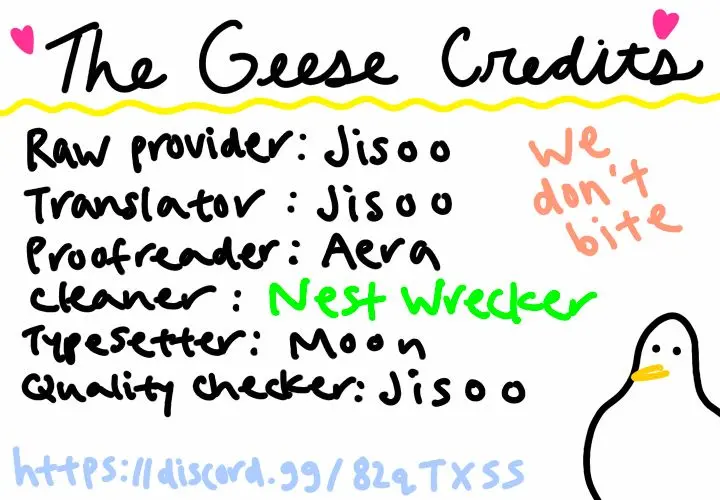 The Geese Credits
Raw provider: Jisoo
Translator: Jisoo
Proofreader: Aera
cleaner: Nest Wrecker
Typesetter: Moon
Quality checker: Jisoo
We
don't
bite
https://discord.gg/82qTXSS